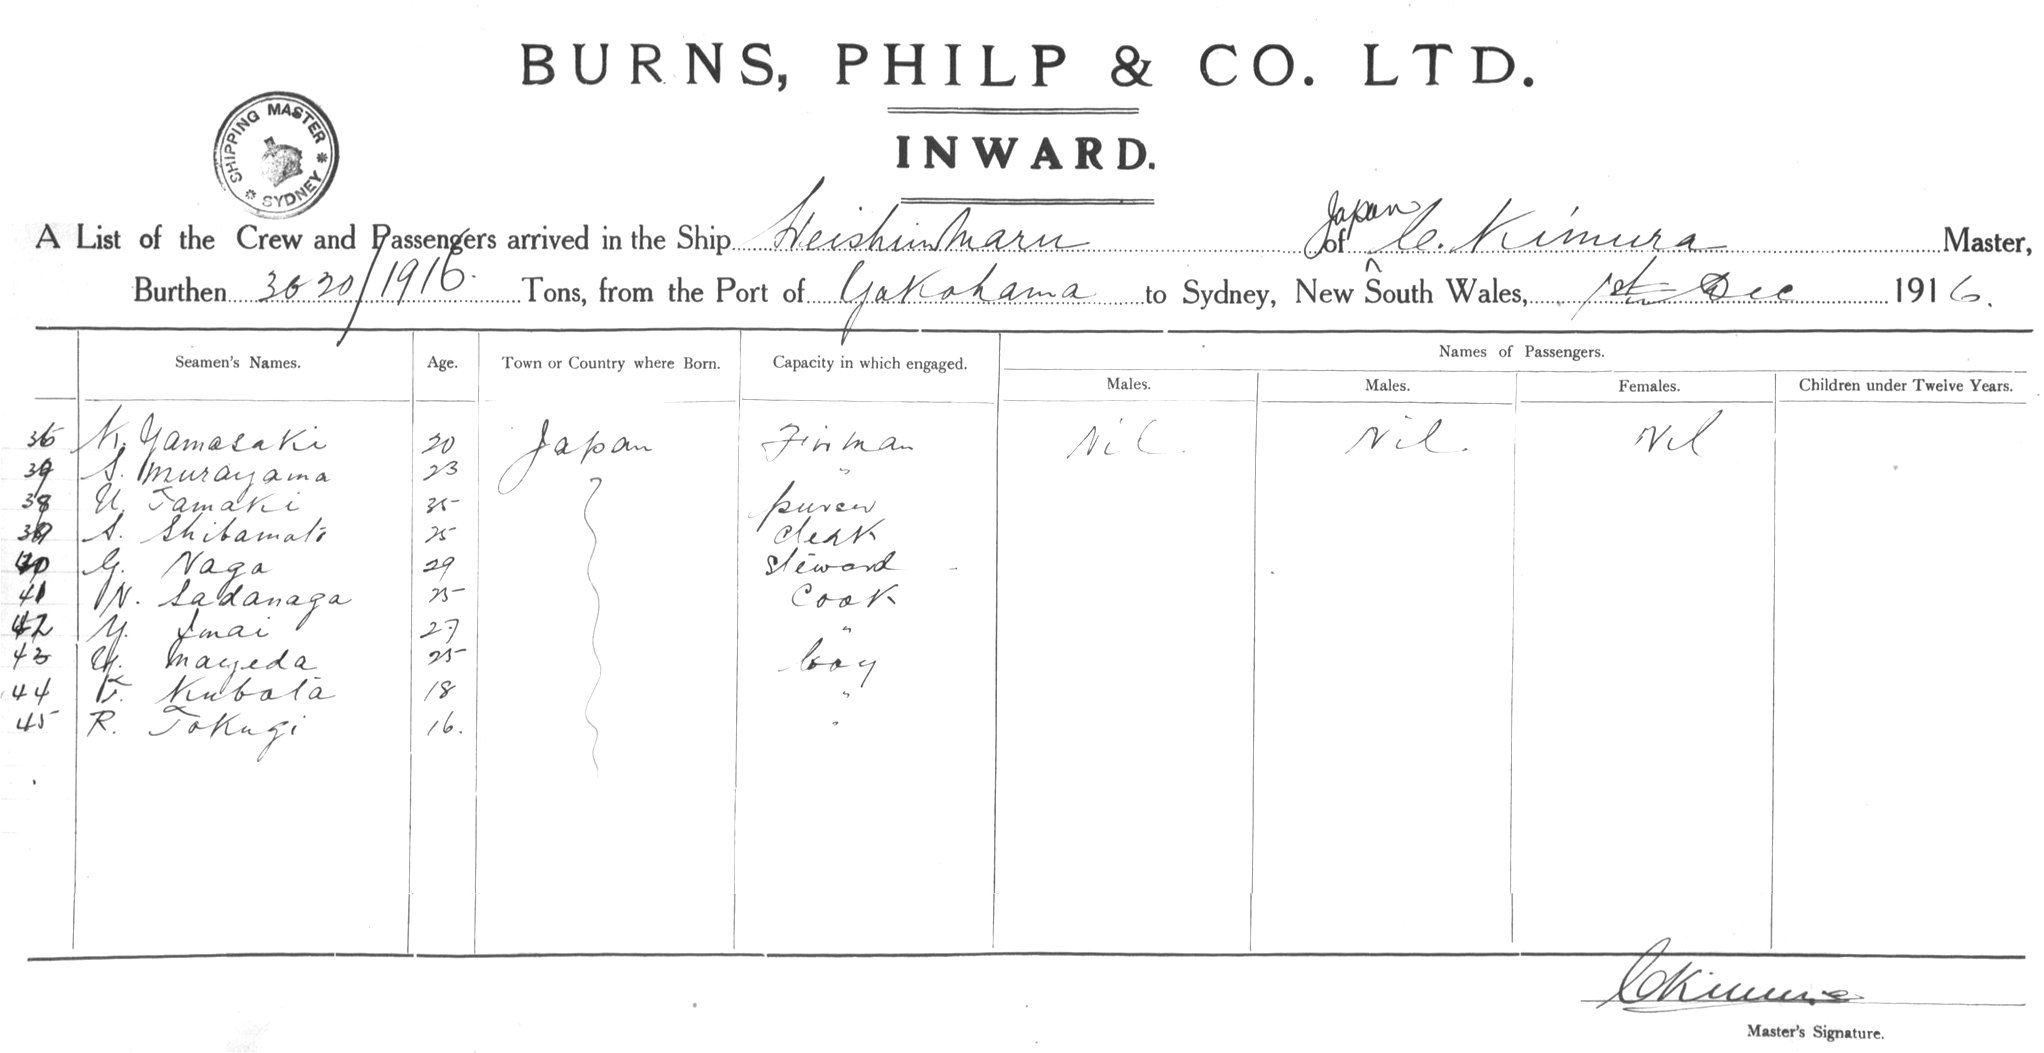 BURNS, PHILP & CO. LTD.
INWARD.
SHIPPING MASTER * SYDNEY *
Japan
A List of the Crew and Passengers arrived in the Ship Heishin Maru of C. Kimura Master,
Burthen 3620/1916 Tons, from the Port of Yokohama to Sydney, New South Wales, 1st Dec 1916.
Seamen's Names. Age. Town or Country where Born. Capacity in which engaged. Names of Passengers.
Males. Males. Females. Children under Twelve Years.
K. Yamasaki 20 Japan Firman Nil Nil Nil
S. Murayama 23 "
38 U. Tamaki 35 purser
39 S. Shibamoto 25 Clerk
40 G. Naga 29 Steward
41 N. Sadanaga 25 Cook
42 Y. Imai 27 "
43 Y. Mayeda 25 boy
44 T. Kubota 18 "
45 R. Tokugi 16. "
C Kimura
Master's Signature.